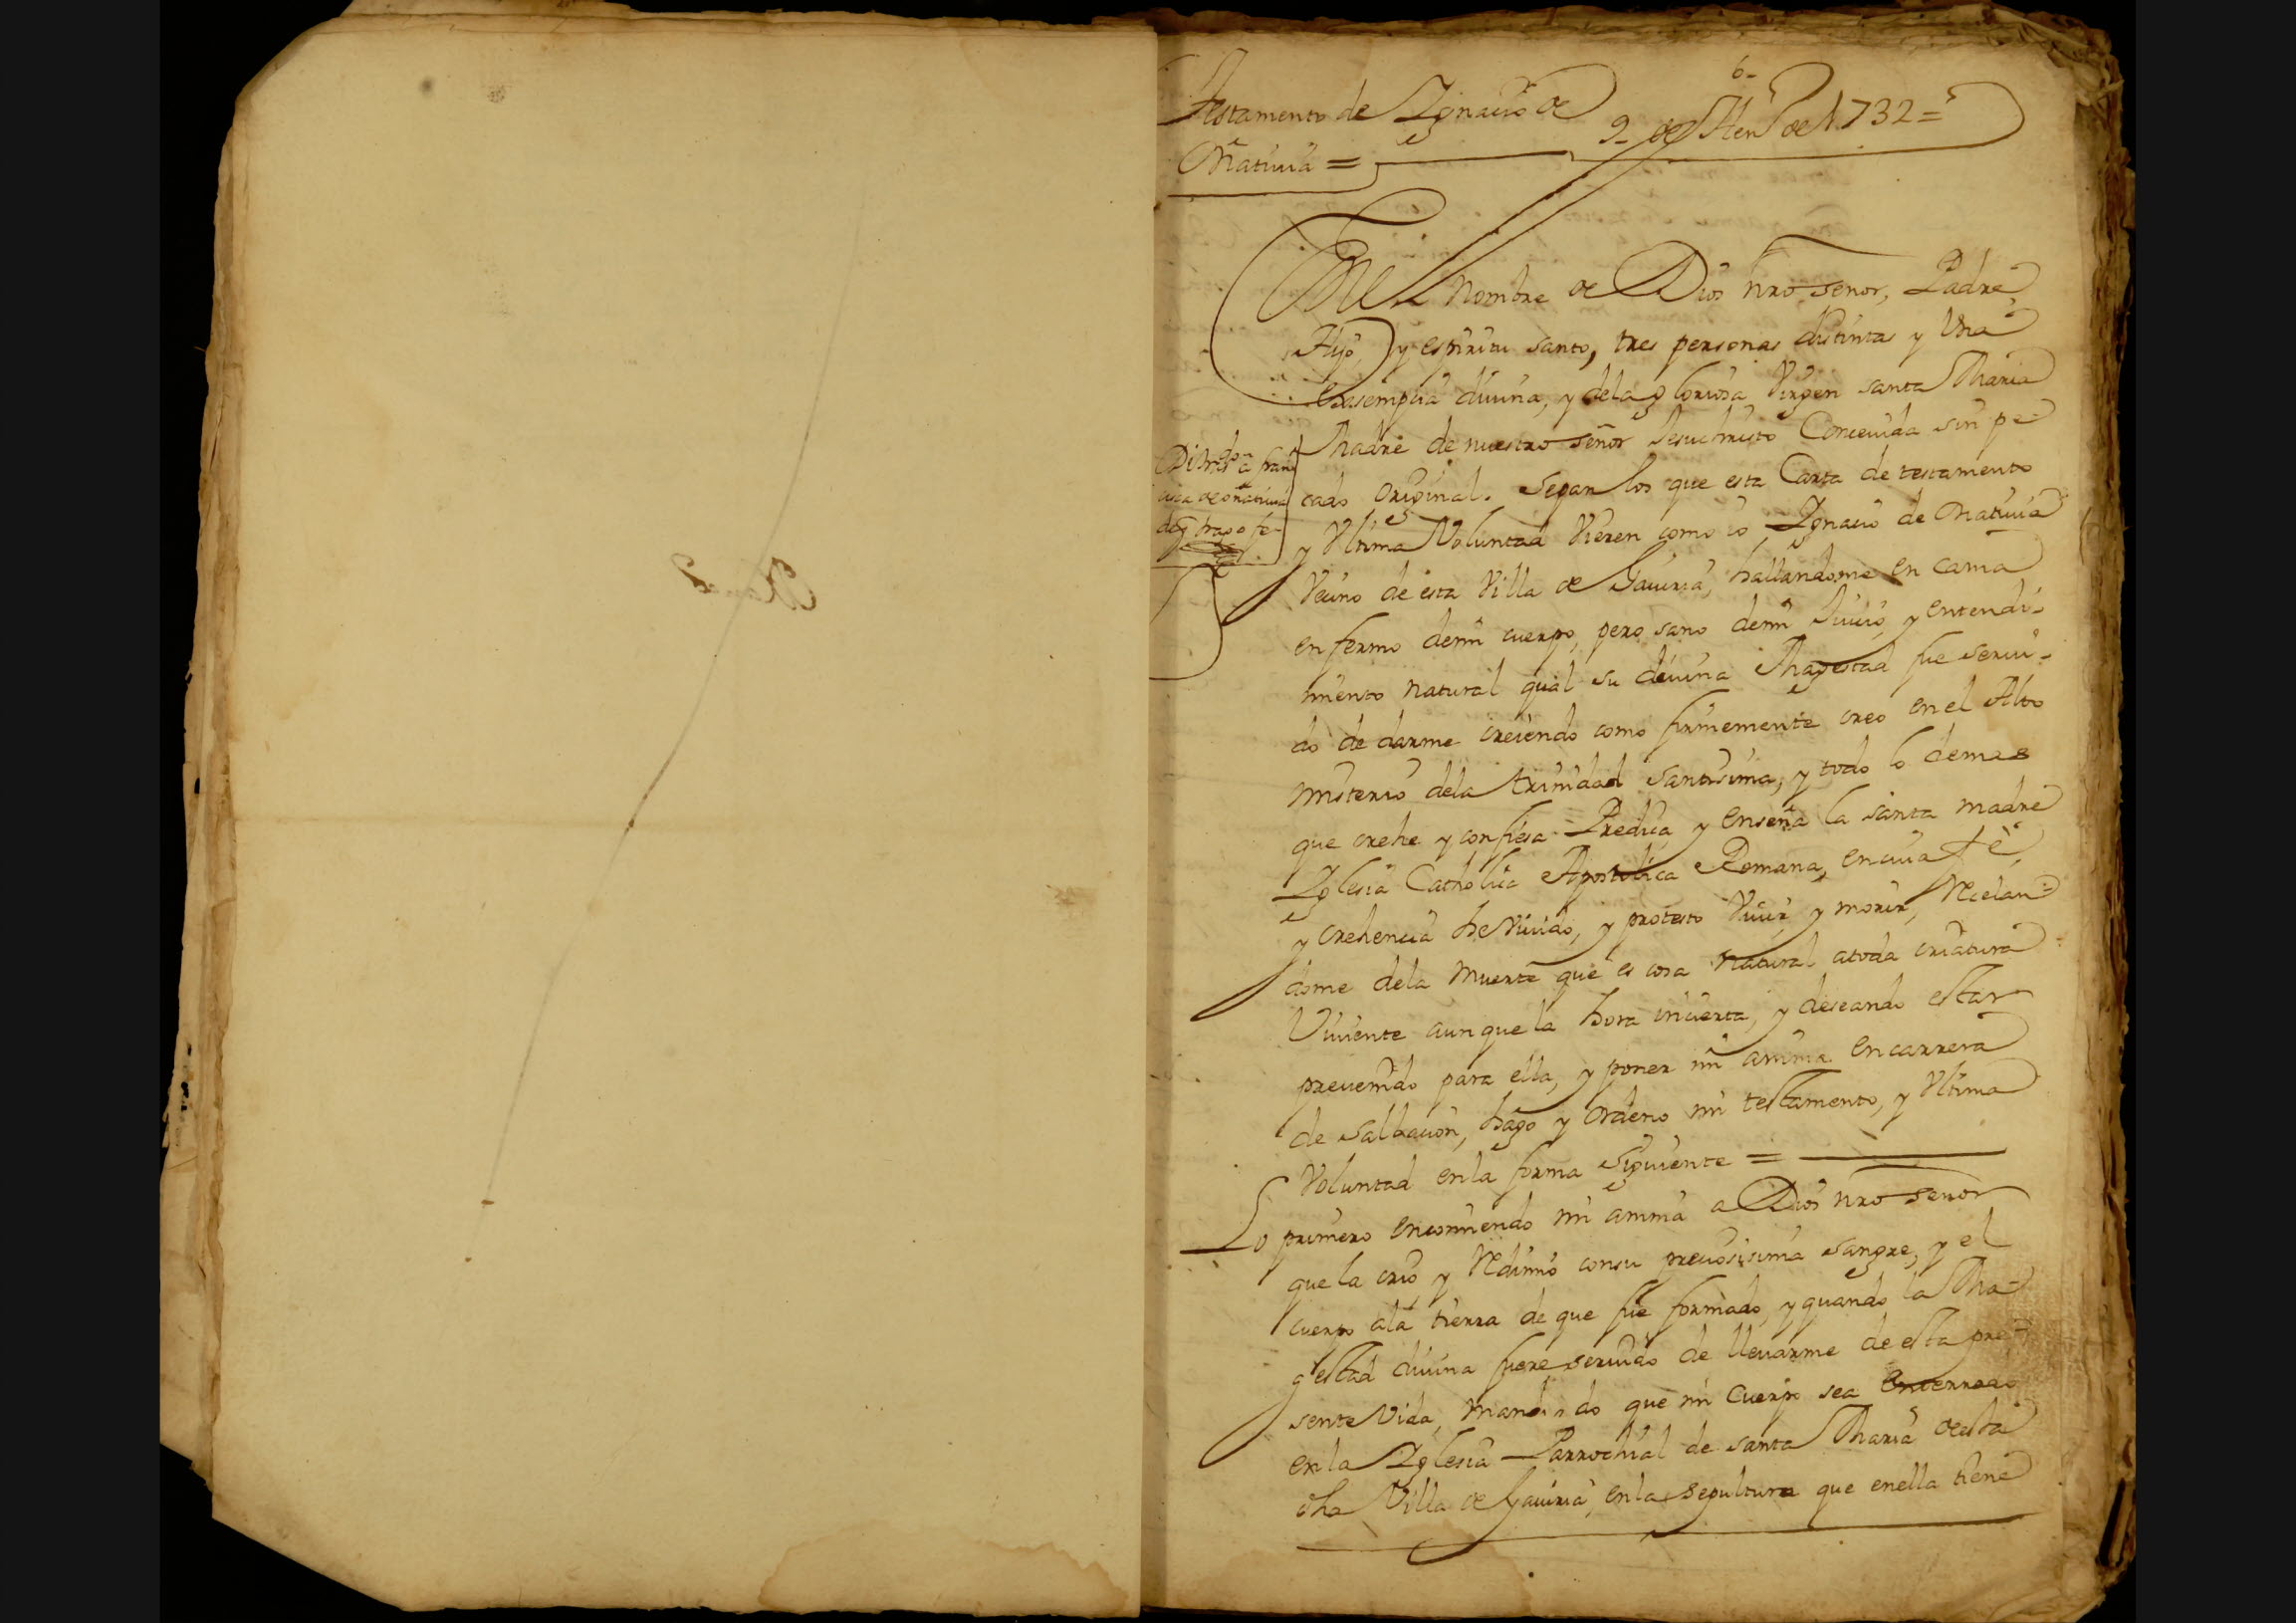 6-
Testamento de Ygnacio de
2 de Hen.º de 1732=
Oñatiuia =
En el Nombre de Dios nro señor, Padre
Hijo, y espiritu santo, tres personas distintas y Vna
esempcia diuina, y dela gloriosa Virgen santa Maria
Madre de nuestro señor Jesuchristo Conceuida sin pe-
cado Original. Sepan los que esta Carta de testamento
y Vltima Voluntad Vieren como io Ygnacio de Oñatiuia
Vecino de esta Villa de Gauiria, hallandome en cama
enfermo demi cuerpo, pero sano demi Juicio, y entendi-
miento natural qual su diuina Magestad fue serui-
do de darme creiendo como firmemente creo en el Alto
misterio dela trinidad santisima, y todo lo demas
que crehe y confiesa Predica y enseña la santa madre
Yglesia Catholica Apostolica Romana, en cuia fè,
y crehencia he Viuido, y protesto Viuir y morir, Recelan-
dome dela muerte que es cosa natural atoda criatura
Viuiente aunque la hora incierta, y deseando estar
preuenido para ella, y poner mi anima en carrera
de salbacion, hago y ordeno mi testamento, y Vltima
Voluntad enla forma siguiente =
Lo primero encomiendo mi anima a Dios nro señor
que la crio, y Redimio consu preciosisima sangre, y el
cuerpo ala tierra de que fue formado, y quando la Ma-
gestad diuina fuere seruido de lleuarme de esta pre-
sente Vida, mando que mi cuerpo sea enterrado
en la Yglesia Parrochial de santa Maria desta
dha Villa de Gauiria, enla sepultura que enella tiene